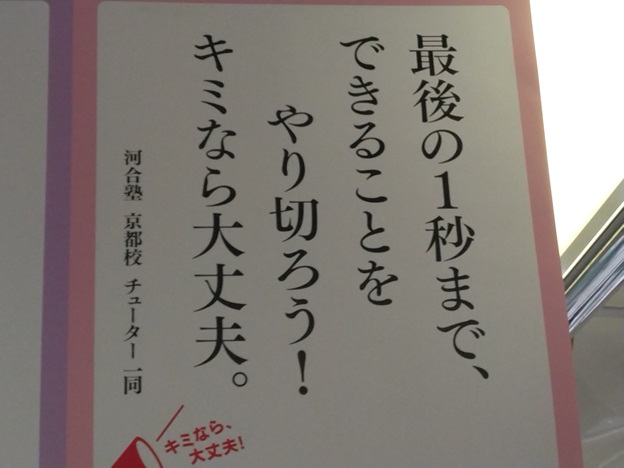 最後の1秒まで、
できることを
やり切ろう!
キミなら大丈夫。
河合塾 京都校 チューター一同
キミなら、
大丈夫!